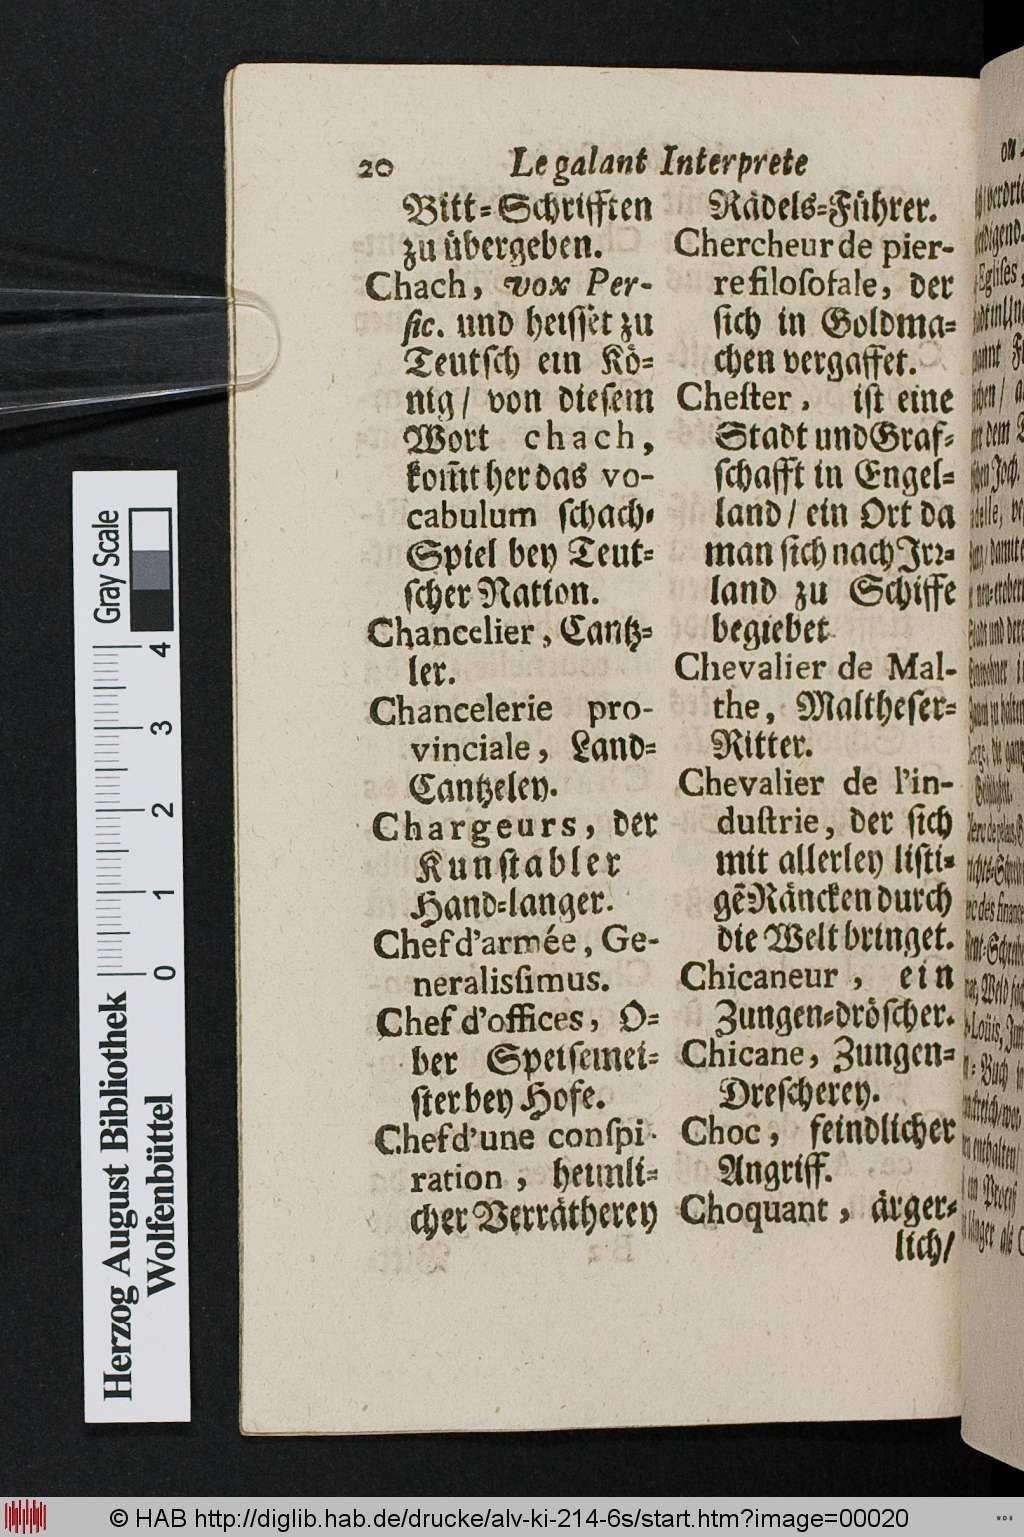 20 Le galant Interprete
Bitt=Schrifften
zu übergeben.
Chach, vox Per-
ſic. und heiſſet zu
Teutſch ein Kö=
nig / von dieſem
Wort chach,
kom̃t her das vo-
cabulum ſchach=
Spiel bey Teut=
ſcher Nation.
Chancelier, Cantz=
ler.
Chancelerie pro-
vinciale, Land=
Cantzeley.
Chargeurs, der
Kunſtabler
Hand=langer.
Chef d'armée, Ge-
neralisſimus.
Chef d'offices, O=
ber Speiſemei=
ſter bey Hofe.
Chef d'une conſpi-
ration, heimli=
cher Verrätherey
Rädels=Führer.
Chercheur de pier-
re filoſofale, der
ſich in Goldma=
chen vergaffet.
Cheſter, iſt eine
Stadt und Graf=
ſchafft in Engel=
land / ein Ort da
man ſich nach Irꝛ=
land zu Schiffe
begiebet
Chevalier de Mal-
the, Maltheſer=
Ritter.
Chevalier de l'in-
duſtrie, der ſich
mit allerley liſti=
gẽ Räncken durch
die Welt bringet.
Chicaneur, ein
Zungen=dröſcher.
Chicane, Zungen=
Dreſcherey.
Choc, feindlicher
Angriff.
Choquant, ärger=
lich/
Gray Scale
4
3
2
1
0
Herzog August Bibliothek
Wolfenbüttel
© HAB http://diglib.hab.de/drucke/alv-ki-214-6s/start.htm?image=00020